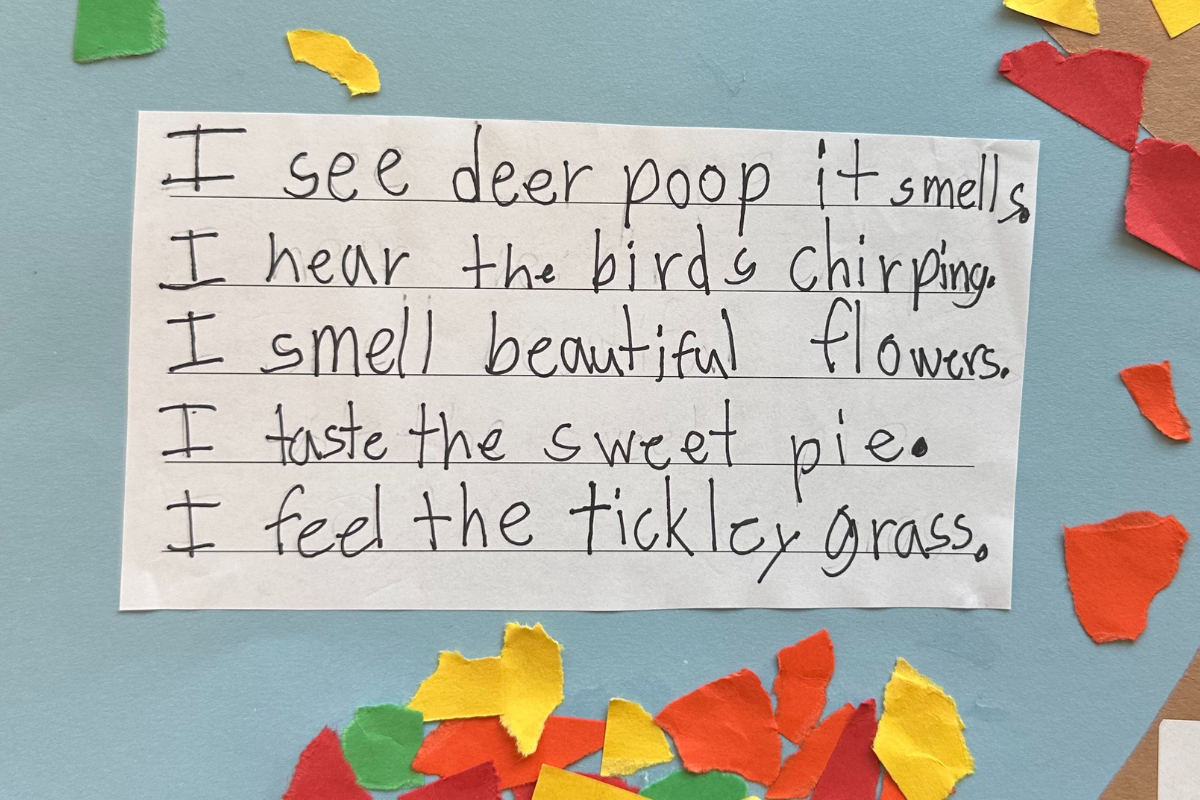 I see deer poop it smells.
I hear the birds chirping.
I smell beautiful flowers.
I taste the sweet pie.
I feel the tickley grass.